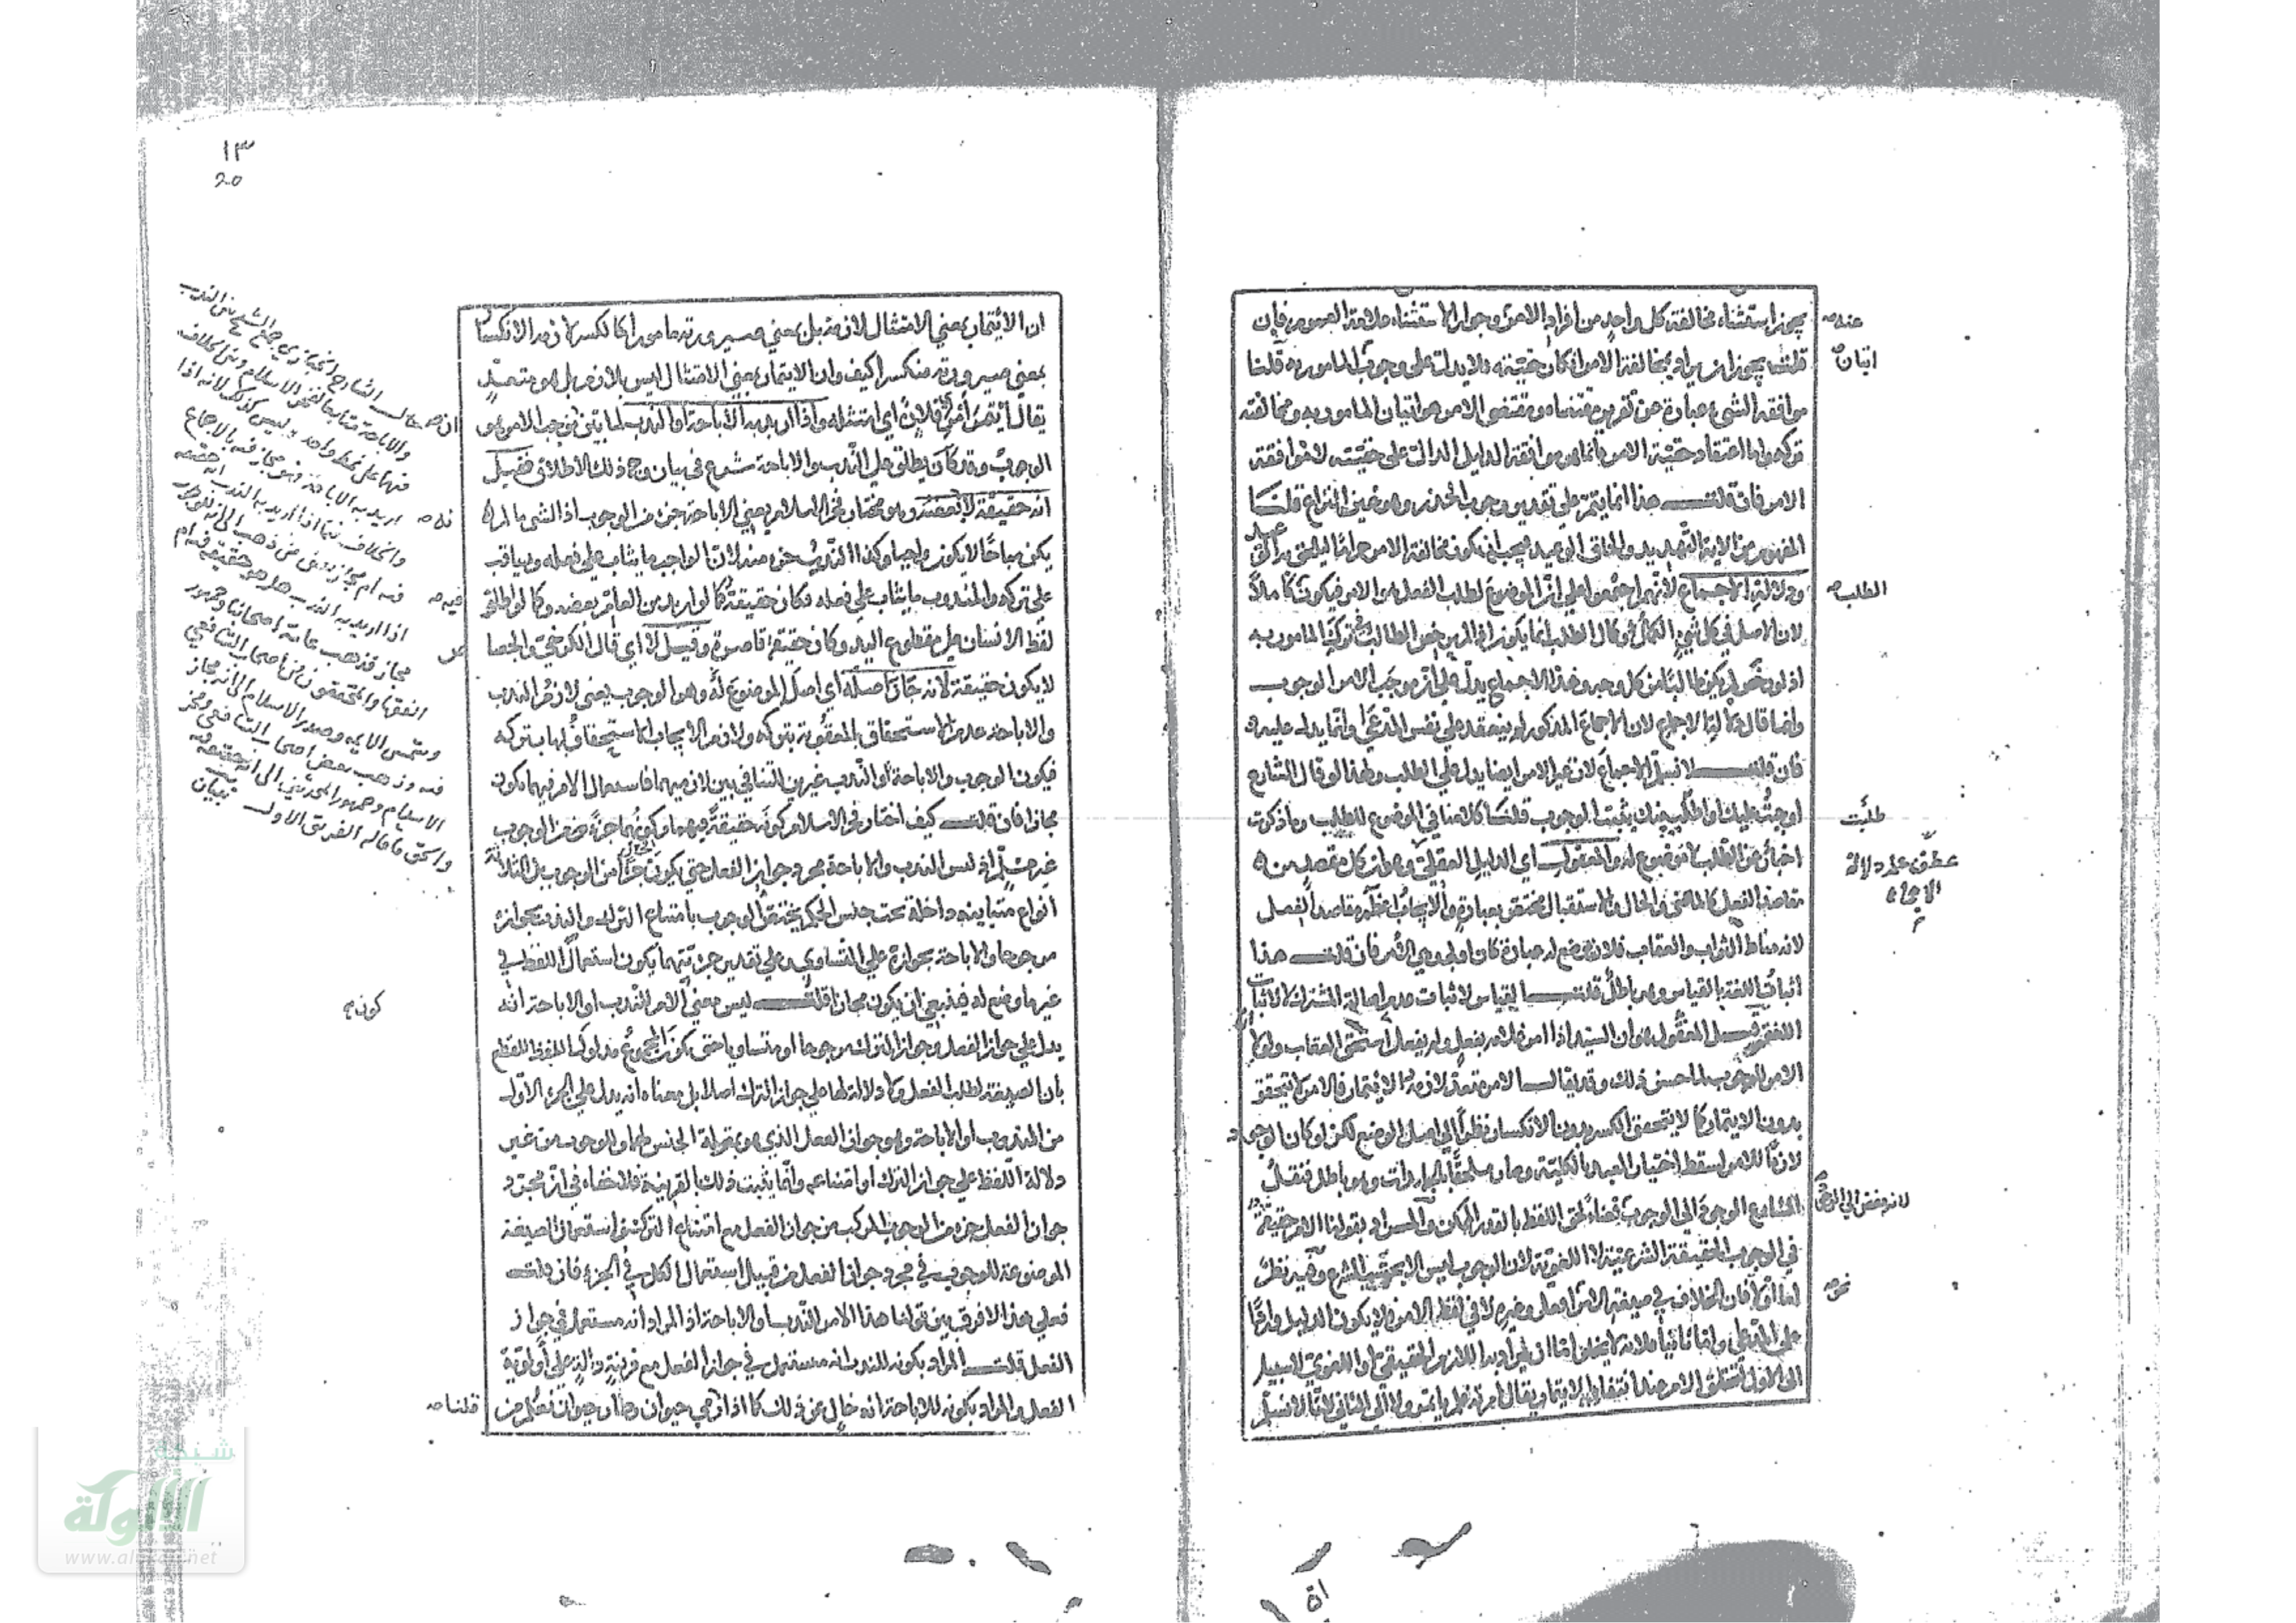 يجوز استثناء مخالفة كل واحد من افراد الامر وجواز الاستثناء علامة العموم فان
قلت يجوز ان يراد بمخالفة الامر انكار حقيته فلا يدل على وجوب المأمور به قلنا
موافقة الشيء عبارة عن تقرير مقتضاه ومقتضى الامر هو اتيان المأمور به ومخالفته
تركه واما اعتقاد حقية الامر فانما هو موافقة الدليل الدال على حقيته لا موافقة
الامر فان قلت هذا انما يتم على تقدير وجوب الحذر وهو عين النزاع قلنا
المفهوم من الاية التهديد والحاق الوعيد فيجب ان يكون مخالفة الامر حراما ليلحق به الوعيد
ودلالة الاجماع لانهم اجمعوا على ان الموضوع لطلب الفعل هو الامر فيكون كاملا
لان الاصل في كل شيء الكمال وكمال الطلب انما يكون اذا لم يرخص الطالب في ترك المأمور به
اذ لو رخص لم يكن طالبا من كل وجه وهذا الاجماع يدل على ان موجب الامر الوجوب
وانما قال دلالة الاجماع لان الاجماع المذكور لم ينعقد على نفس المدعى وانما يدل عليه
فان قلت لا نسلم الاجماع لان غير الامر ايضا يدل على الطلب ولهذا لو قال الشارع
اوجبت عليك او اطلب منك يثبت الوجوب قلنا كلامنا في الموضوع للطلب وما ذكرت
اخبار عن الطلب لا موضوع له والمعقول اي الدليل العقلي وهو ان كل مقصد من
مقاصد الفعل كالماضي والحال والاستقبال مختص بعبارة والايجاب اعظم مقاصد الفعل
لانه مناط الثواب والعقاب فلان يوضع له عبارة كان اولى وهي الامر فان قلت هذا
اثبات اللغة بالقياس وهو باطل قلت القياس لاثبات عدم اصالة المشترك لا لاثبات
اللغة وقيل المعقول هو ان السيد اذا امر غلامه بفعل ولم يفعل استحق العقاب ولولا ان
الامر للوجوب لما حسن ذلك وقد يقال الامر متعد لازمه الائتمار فالامر لا يتحقق
بدون الايتمار كما لا يتحقق الكسر بدون الانكسار نظرا الى اصل الوضع لكن لو كان الوجود
لازما للامر لسقط اختيار العبد بالكلية وصار ملحقا بالجمادات وهو باطل فنقل
الشارع الوجود الى الوجوب قضاء لحق اللفظ بالقدر الممكن والمراد بقولنا الامر حقيقة
في الوجوب الحقيقة الشرعية لا اللغوية لان الوجوب ليس الا بحكم الشرع وفيه نظر
اما اولا فان الخلاف في صيغة الامر افعل وغيره لا في لفظ الامر فلا يكون الدليل واردا
على المدعى واما ثانيا فلانه لا يخلو اما ان يراد باللازم الحقيقي او اللغوي لا سبيل
الى الاول لتحقق الامر عند انتفاء الايتمار يقال امرته فلم يأتمر ولا الى الثاني لانا لا نسلم
عنده
اتيان
الطلب
طلبت
عطف على دلالة
الاجماع
نحو
١٣
20
ان الائتمار بمعنى الامتثال لازمه بل بمعنى صيرورته مأمورا كالكسر لازمه الانكسار
بمعنى صيرورته منكسرا كيف وان الايتمار بمعنى الامتثال ليس بلازم بل هو متعد
يقال أيتمر امر فلان اي امتثله واذا اريد به الاباحة او الندب لما بين موجب الامر وهو
الوجوب وقد كان يطلق على الندب والاباحة شرع في بيان وجه ذلك الاطلاق فقيل
انه حقيقة لانه بعضه وهو مختار فخر الاسلام يعني الاباحة جزء من الوجوب اذ الشيء ما لم
يكن مباحا لا يكون واجبا وكذا الندب جزء منه لان الواجب ما يثاب على فعله ويعاقب
على تركه والمندوب ما يثاب على فعله فكان حقيقة كما لو اريد من العام بعضه وكما لو اطلق
لفظ الانسان على مقطوع اليد وكان حقيقة قاصرة وقيل لا اي قال الكرخي والجصاص
لا يكون حقيقة لانه جاز اصله اي اصل الموضوع له وهو الوجوب يعني لازم الندب
والاباحة عدم استحقاق العقوبة بتركه ولازم الايجاب استحقاق العقاب بتركه
فيكون الوجوب والاباحة او الندب غيرين للتنافي بين لازميهما فاستعمال الامر فيهما يكون
مجازا فان قلت كيف اختار فخر الاسلام كونه حقيقة فيهما وكونهما جزءا من الوجوب
غير مسلم اذ ليس الندب والاباحة مجرد جواز الفعل حتى يكون جزءا من الوجوب بل الثلاثة
انواع متباينة داخلة تحت جنس الحكم يختص الوجوب بامتناع الترك والندب بجوازه
مرجوحا والاباحة بجوازه على التساوي وعلى تقدير جزئيتهما يكون استعمال اللفظ في
غير ما وضع له فينبغي ان يكون مجازا قلت ليس معنى الامر للندب او الاباحة انه
يدل على جواز الفعل وجواز الترك مرجوحا او متساويا حتى يكون المجموع مدلول اللفظ للقطع
بان الصيغة لطلب الفعل ولا دلالة لها على جواز الترك اصلا بل معناه انه يدل على الجزء الاول
من المندوب او الاباحة وهو جواز الفعل الذي هو بمنزلة الجنس لهما وللوجوب من غير
دلالة اللفظ على جواز الترك او امتناعه وانما يثبت ذلك بالقرينة فلا خفاء في ان مجرد
جواز الفعل جزء من الوجوب المركب من جواز الفعل مع امتناع الترك فيكون استعمال الصيغة
الموضوعة للوجوب في مجرد جواز الفعل من قبيل استعمال الكل في الجزء فان قلت
فعلى هذا لا فرق بين قولنا هذا الامر للندب او الاباحة اذ المراد انه مستعمل في جواز
الفعل قلت المراد بكونه للندب انه مستعمل في جواز الفعل مع قرينة دالة على أولوية
الفعل والمراد بكونه للاباحة انه خال عن ذلك كما اذا رمي حيوان وطار حيوان
قال الشارح
والاباحة متابعا لفخر الاسلام
وليس كذلك لانه اذا
اريد به الاباحة فهو مجاز فيه بالاجماع
والخلاف فيما اذا اريد به الندب انه حقيقة
فيه ام مجاز
اذا اريد به الندب هل هو حقيقة فيه ام
مجاز فذهب عامة اصحابنا وجمهور
الفقهاء والمحققون من اصحاب الشافعي
وشمس الائمة وصدر الاسلام الى انه مجاز
فيه وذهب بعض اصحاب الشافعي وفخر
الاسلام وجمهور المحدثين الى انه حقيقة فيه
والحق ما قاله الفريق الاول
فيه
كونه
قلنا
شبكة
الألوكة
www.alukah.net